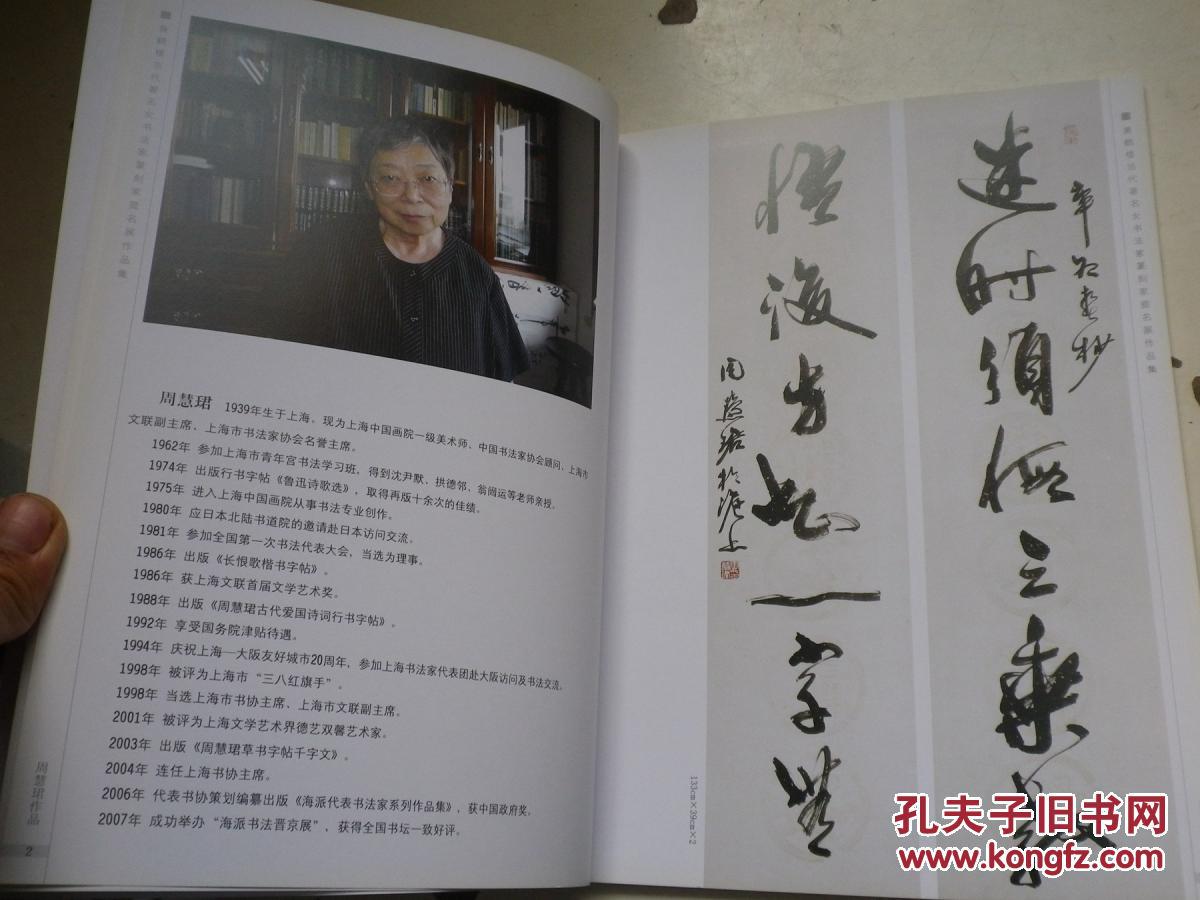 黄鹤楼当代著名女书法家篆刻家提名展作品集
周慧珺 1939年生于上海。现为上海中国画院一级美术师、中国书法家协会顾问、上海市
文联副主席、上海市书法家协会名誉主席。
1962年 参加上海市青年宫书法学习班，得到沈尹默、拱德邻、翁闿运等老师亲授。
1974年 出版行书字帖《鲁迅诗歌选》，取得再版十余次的佳绩。
1975年 进入上海中国画院从事书法专业创作。
1980年 应日本北陆书道院的邀请赴日本访问交流。
1981年 参加全国第一次书法代表大会，当选为理事。
1986年 出版《长恨歌楷书字帖》。
1986年 获上海文联首届文学艺术奖。
1988年 出版《周慧珺古代爱国诗词行书字帖》。
1992年 享受国务院津贴待遇。
1994年 庆祝上海—大阪友好城市20周年，参加上海书法家代表团赴大阪访问及书法交流。
1998年 被评为上海市“三八红旗手”。
1998年 当选上海市书协主席、上海市文联副主席。
2001年 被评为上海文学艺术界德艺双馨艺术家。
2003年 出版《周慧珺草书字帖千字文》。
2004年 连任上海书协主席。
2006年 代表书协策划编纂出版《海派代表书法家系列作品集》，获中国政府奖。
2007年 成功举办“海派书法晋京展”，获得全国书坛一致好评。
周慧珺作品
2
黄鹤楼当代著名女书法家篆刻家提名展作品集
辛卯春抄
迷时须假三乘教
悟後方知一字無
周慧珺於滬上
133cm×39cm×2
孔夫子旧书网
www.kongfz.com